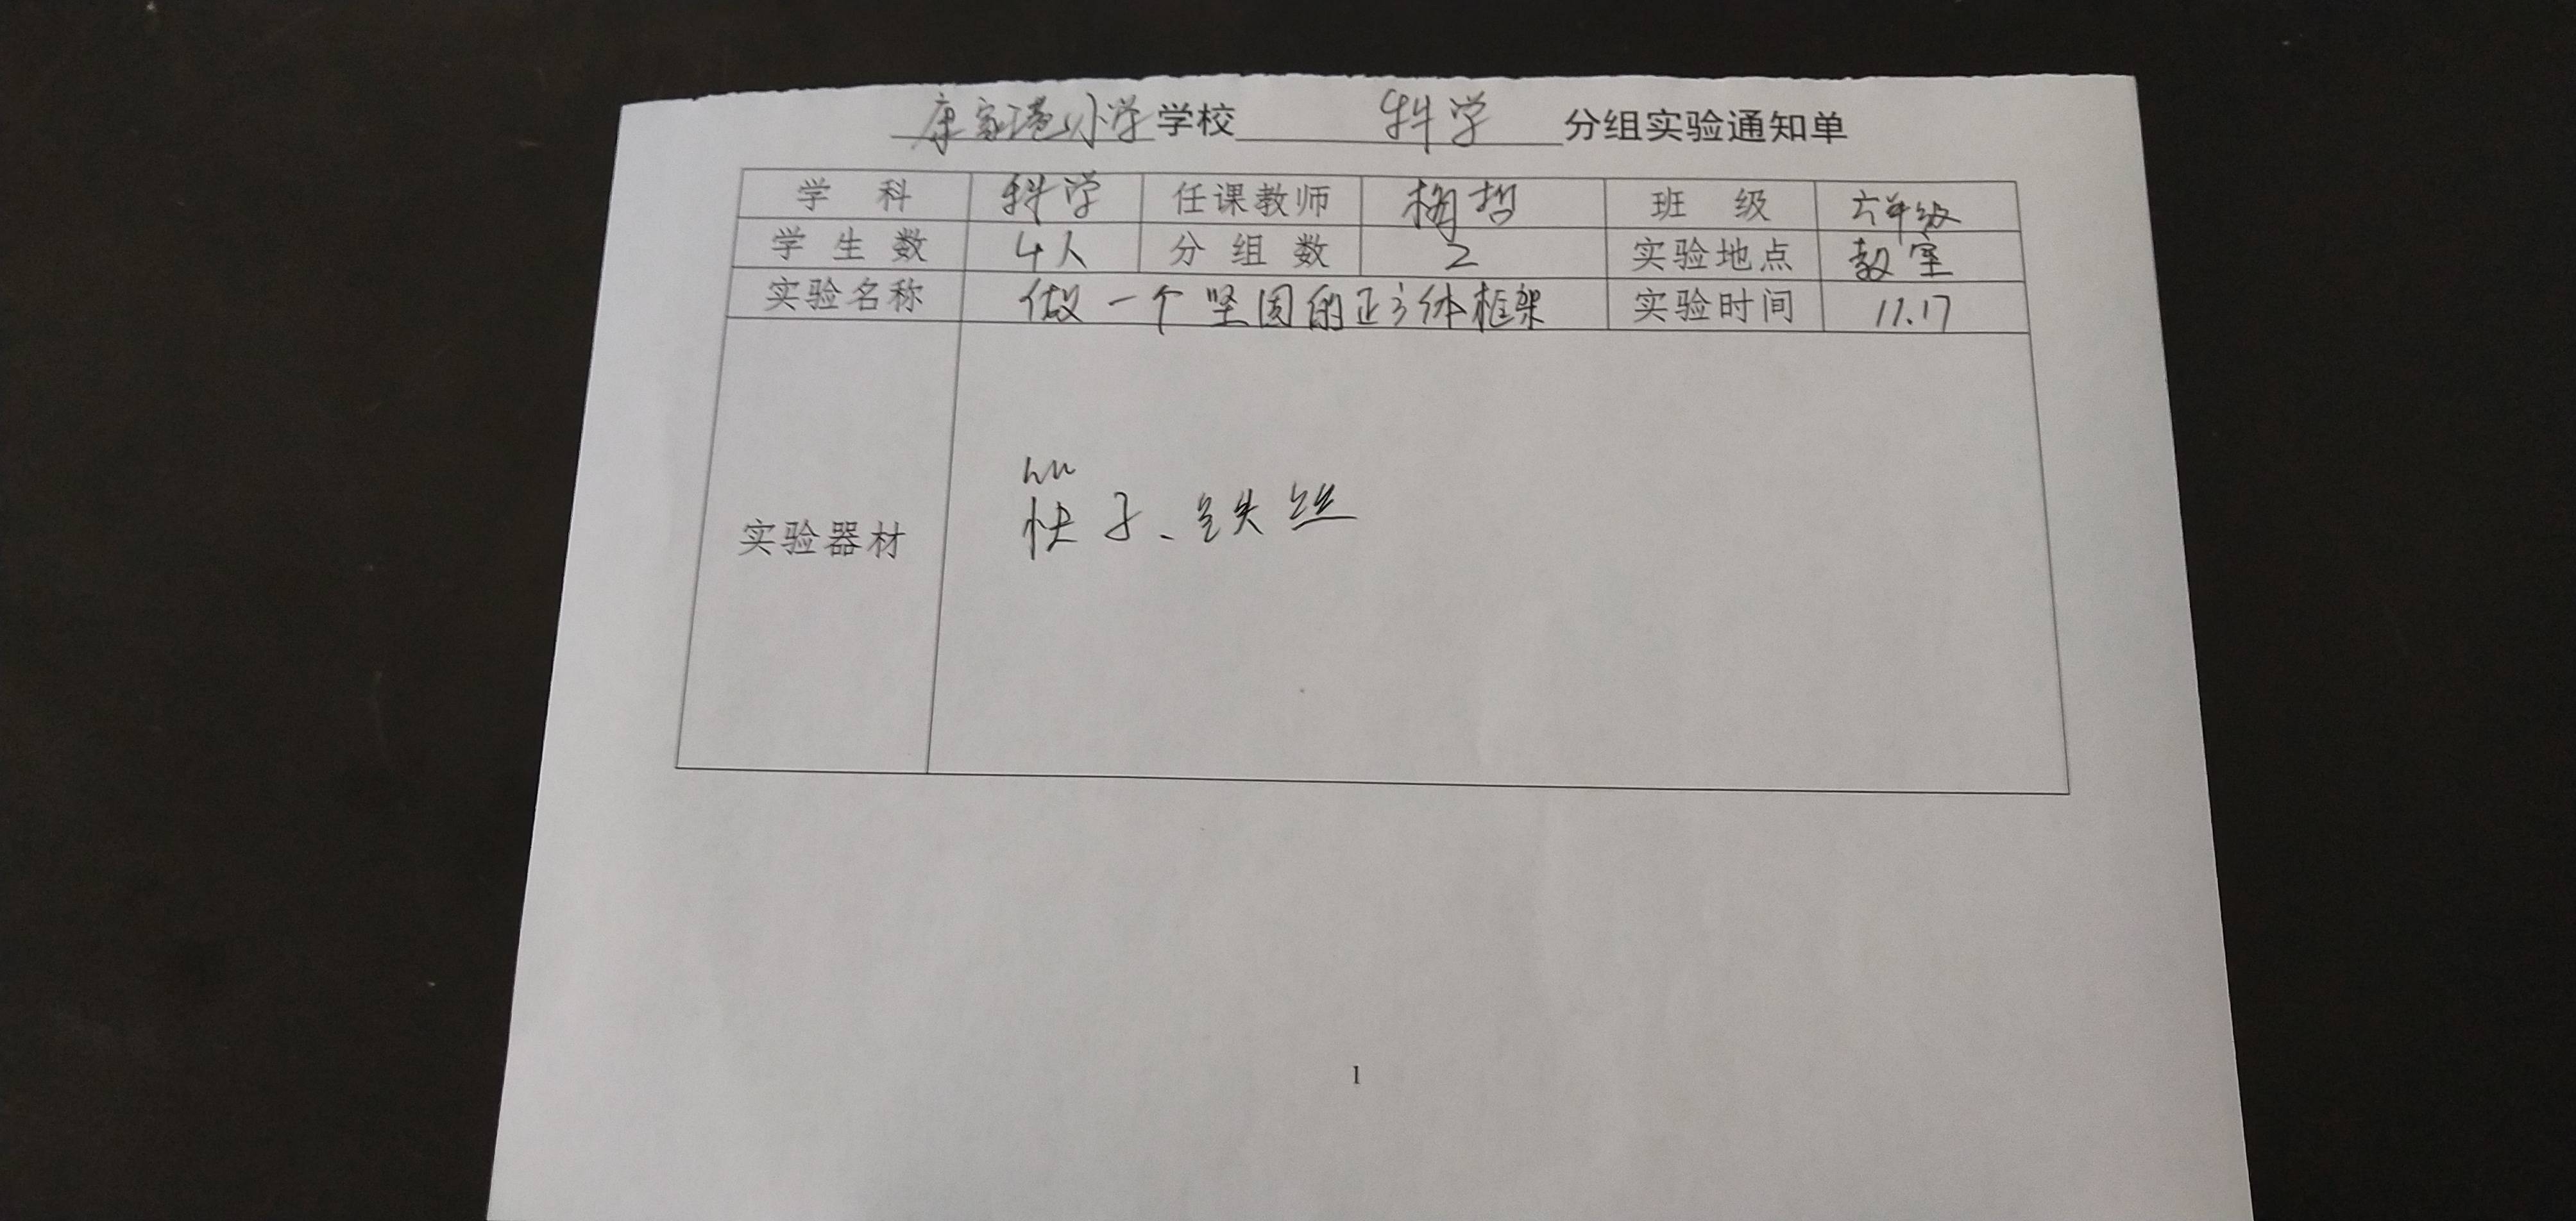 康家港小学学校 科学 分组实验通知单
学 科 科学 任课教师 梅哲 班 级 六年级
学生数 4人 分组数 2 实验地点 教室
实验名称 做一个坚固的正方体框架 实验时间 11.17
实验器材 筷子、铁丝
1